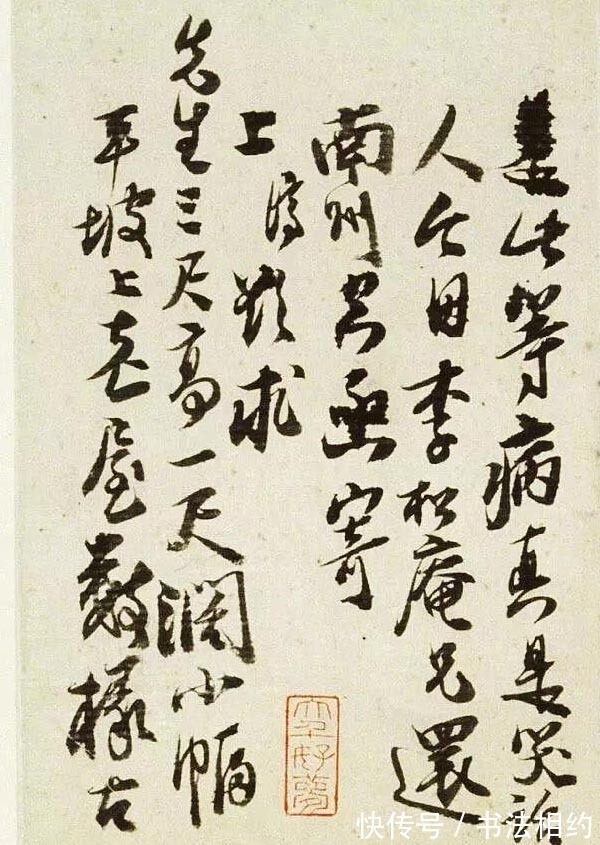 此等病真是笑話
人今因李松庵兄還
南州空函寄
上濟欲求
先生三尺高一尺闊小幅
平坡上老屋數椽古
快传号 / 书法相约